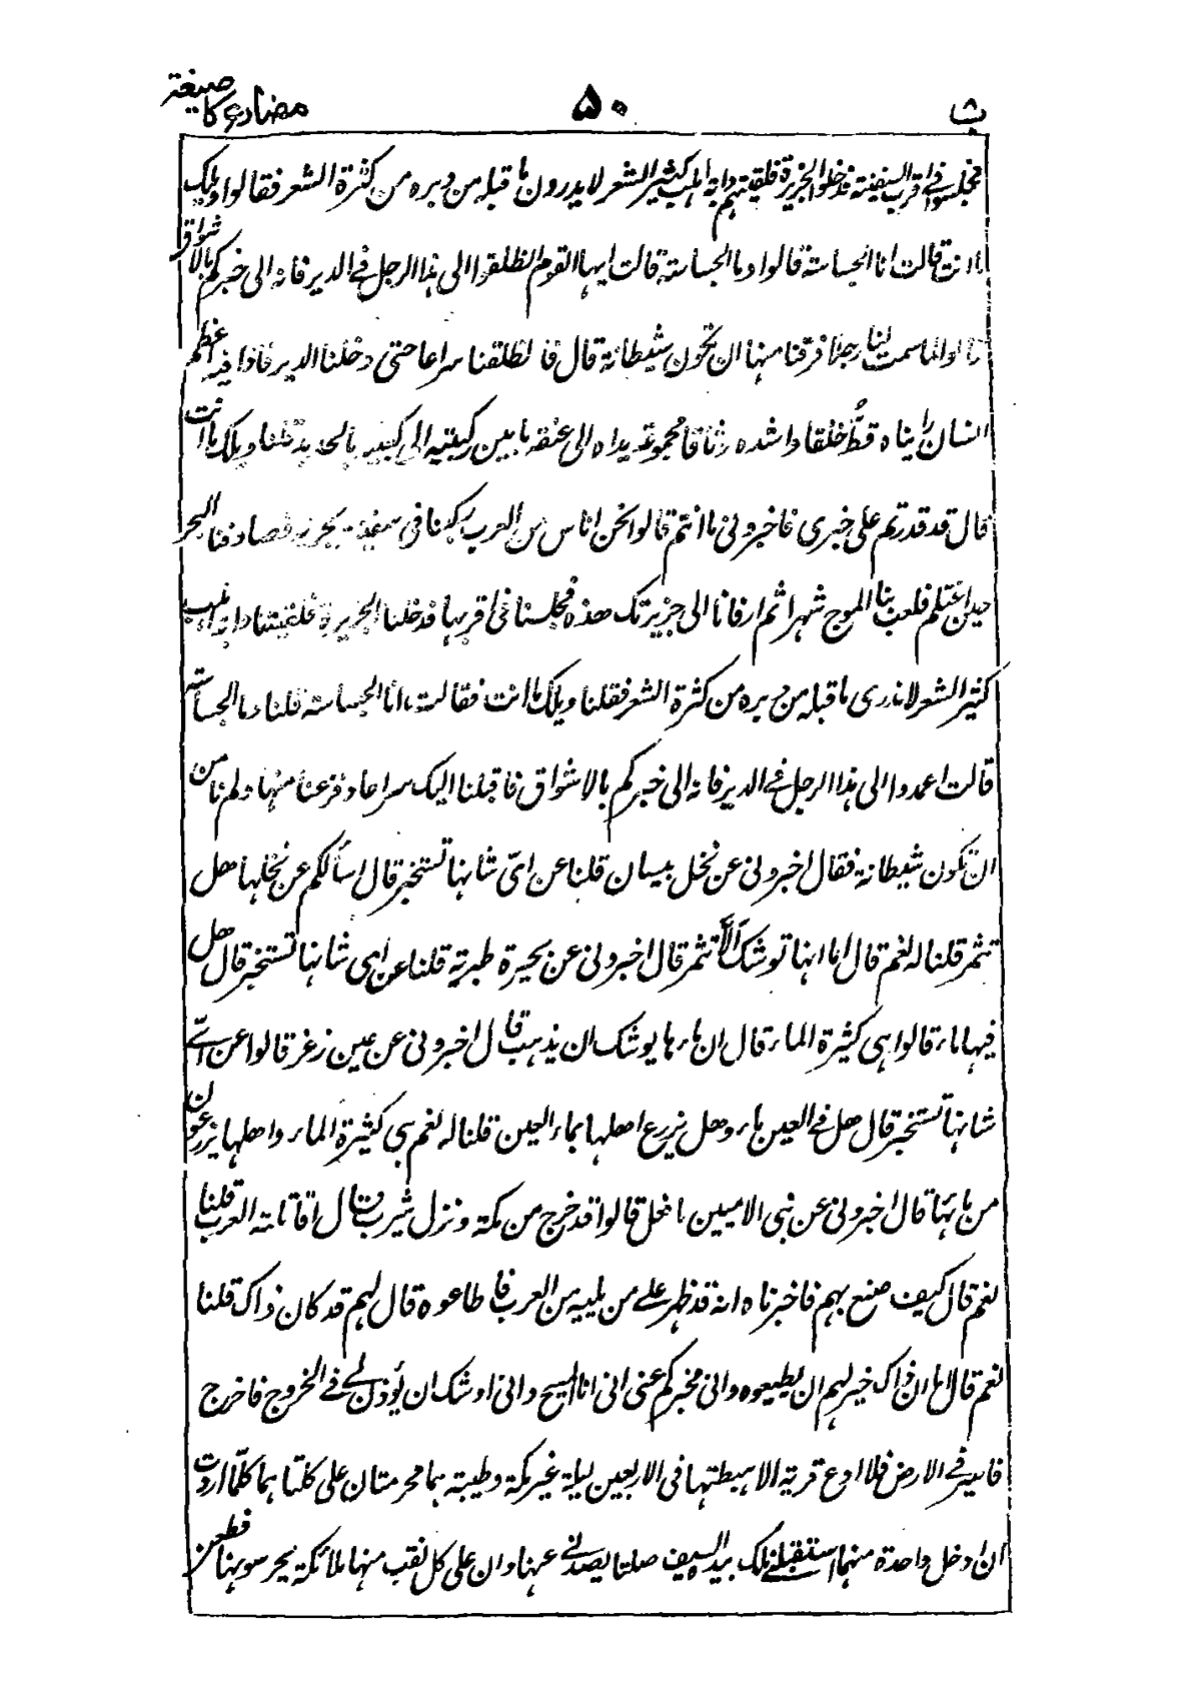 ث ۵۰ مضارع کا صیغۃ
فجلسوا فی اقرب السفینۃ فدخلوا الجزیرۃ فلقیتہم دابۃ اہلب کثیر الشعر لا یدرون ما قبلہ من دبرہ من کثرۃ الشعر فقالوا ویلک
ما انت قالت انا الجساسۃ قالوا وما الجساسۃ قالت ایہا القوم انطلقوا الی ہذا الرجل فے الدیر فانہ الی خبرکم بالاشواق
قالوا لما سمت لنا رجلاً فرقنا منہا ان تکون شیطانۃ قال فانطلقنا سراعا حتی دخلنا الدیر فاذا فیہ اعظم
انسان رایناہ قطُّ خلقا واشدہ وثاقا مجموعۃ یداہ الی عنقہ ما بین رکبتیہ الی کعبیہ بالحدید قلنا ویلک ما انت
قال قد قدرتم علی خبری فاخبرونی ما انتم قالوا نحن اناس من العرب رکبنا فی سفینۃ بحریۃ فصادفنا البحر
حین اغتلم فلعب بنا الموج شہرا ثم ارفانا الی جزیرتک ھذہ فجلسنا فی اقربہا فدخلنا الجزیرۃ فلقیتنا دابۃ اہلب
کثیر الشعر لا ندری ما قبلہ من دبرہ من کثرۃ الشعر فقلنا ویلک ما انت فقالت انا الجساسۃ قلنا وما الجساسۃ
قالت اعمدوا الی ہذا الرجل فے الدیر فانہ الی خبرکم بالاشواق فاقبلنا الیک سراعا وفزعنا منہا ولم نامن
ان تکون شیطانۃ فقال اخبرونی عن نخل بیسان قلنا عن ایّ شانہا تستخبر قال اسألکم عن نخلہا ھل
تثمر قلنا لہ نعم قال اما انہا توشک اَلَّا تثمر قال اخبرونی عن بحیرۃ طبریۃ قلنا عن ای شانہا تستخبر قال ھل
فیہا ماء قالوا ہی کثیرۃ الماء قال ان ماءہا یوشک ان یذہب قال اخبرونی عن عین زغر قالوا عن ایّ
شانہا تستخبر قال ھل فے العین ماء وھل یزرع اھلہا بماء العین قلنا لہ نعم ہی کثیرۃ الماء واھلہا یزرعون
من مائہا قال اخبرونی عن نبی الامیین ما فعل قالوا قد خرج من مکۃ ونزل یثرب قال اقاتلہ العرب قلنا
نعم قال کیف صنع بہم فاخبرناہ انہ قد ظہر علے من یلیہ من العرب فاطاعوہ قال لہم قد کان ذاک قلنا
نعم قال اما ان ذاک خیر لہم ان یطیعوہ وانی مخبرکم عنی انی انا المسیح وانی اوشک ان یُوذن لے فے الخروج فاخرج
فاسیر فے الارض فلا ادع قریۃ الا ہبطتہا فی الاربعین لیلۃ غیر مکۃ وطیبۃ ہما محرمتان علی کلتاہما کلّما اردت
ان ادخل واحدۃ منہما استقبلنے ملک بیدہ السیف صلتا یصدنے عنہا وان علی کل نقب منہا ملائکۃ یحرسونہا فطعن